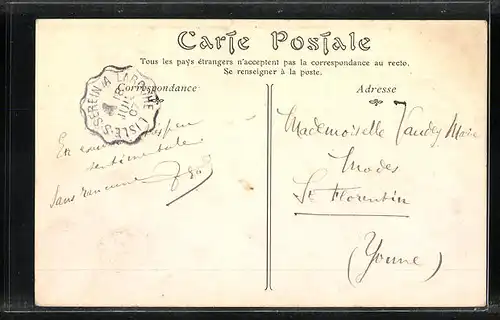 Carte Postale
Tous les pays étrangers n'acceptent pas la correspondance au recto.
Se renseigner à la poste.
Correspondance
Adresse
L'ISLE-S-SEREIN A LAROCHE
18
JUIL
07
En peu
sentimentale.
Sans rancune
Mademoiselle Marie
Modes
St Florentin
(Yonne)